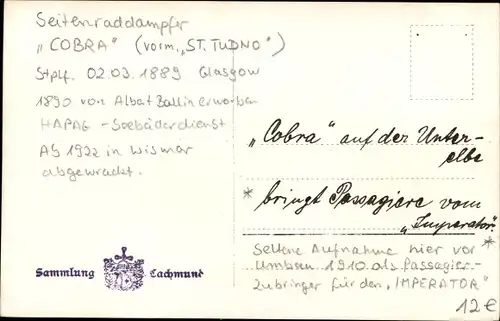 Seitenraddampfer
„COBRA" (vorm. „ST. TUDNO")
Stplf. 02.03.1889 Glasgow
1890 von Albert Ballin erworben
HAPAG - Seebäderdienst
Ab 1922 in Wismar
abgewrackt.
„Cobra" auf der Unter-
elbe
* bringt Passagiere vom
„Imperator". *
Seltene Aufnahme hier vor
Umbau 1910 als Passagier-
zubringer für den „IMPERATOR"
12€
Sammlung Lachmund